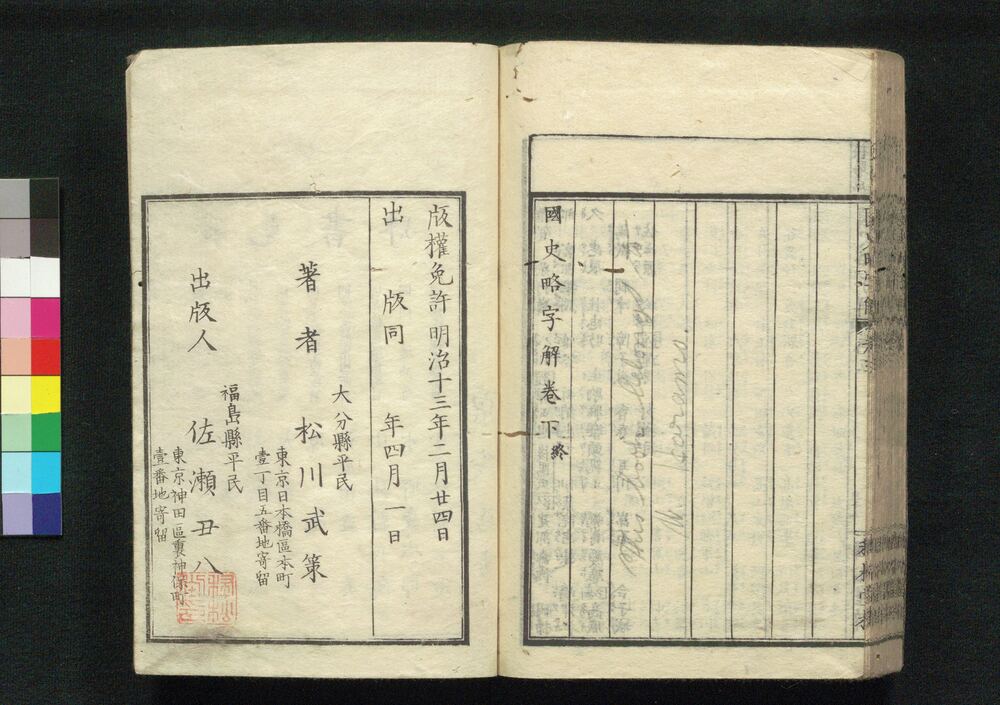 國史略字解卷下終
This book belong
M. Hirano.
版權免許明治十三年二月廿四日
出版同年四月一日
大分縣平民
著者 松川武策
東京日本橋區本町
壹丁目五番地寄留
福島縣平民
出版人 佐瀬丑八
東京神田區裏神保町
壹番地寄留